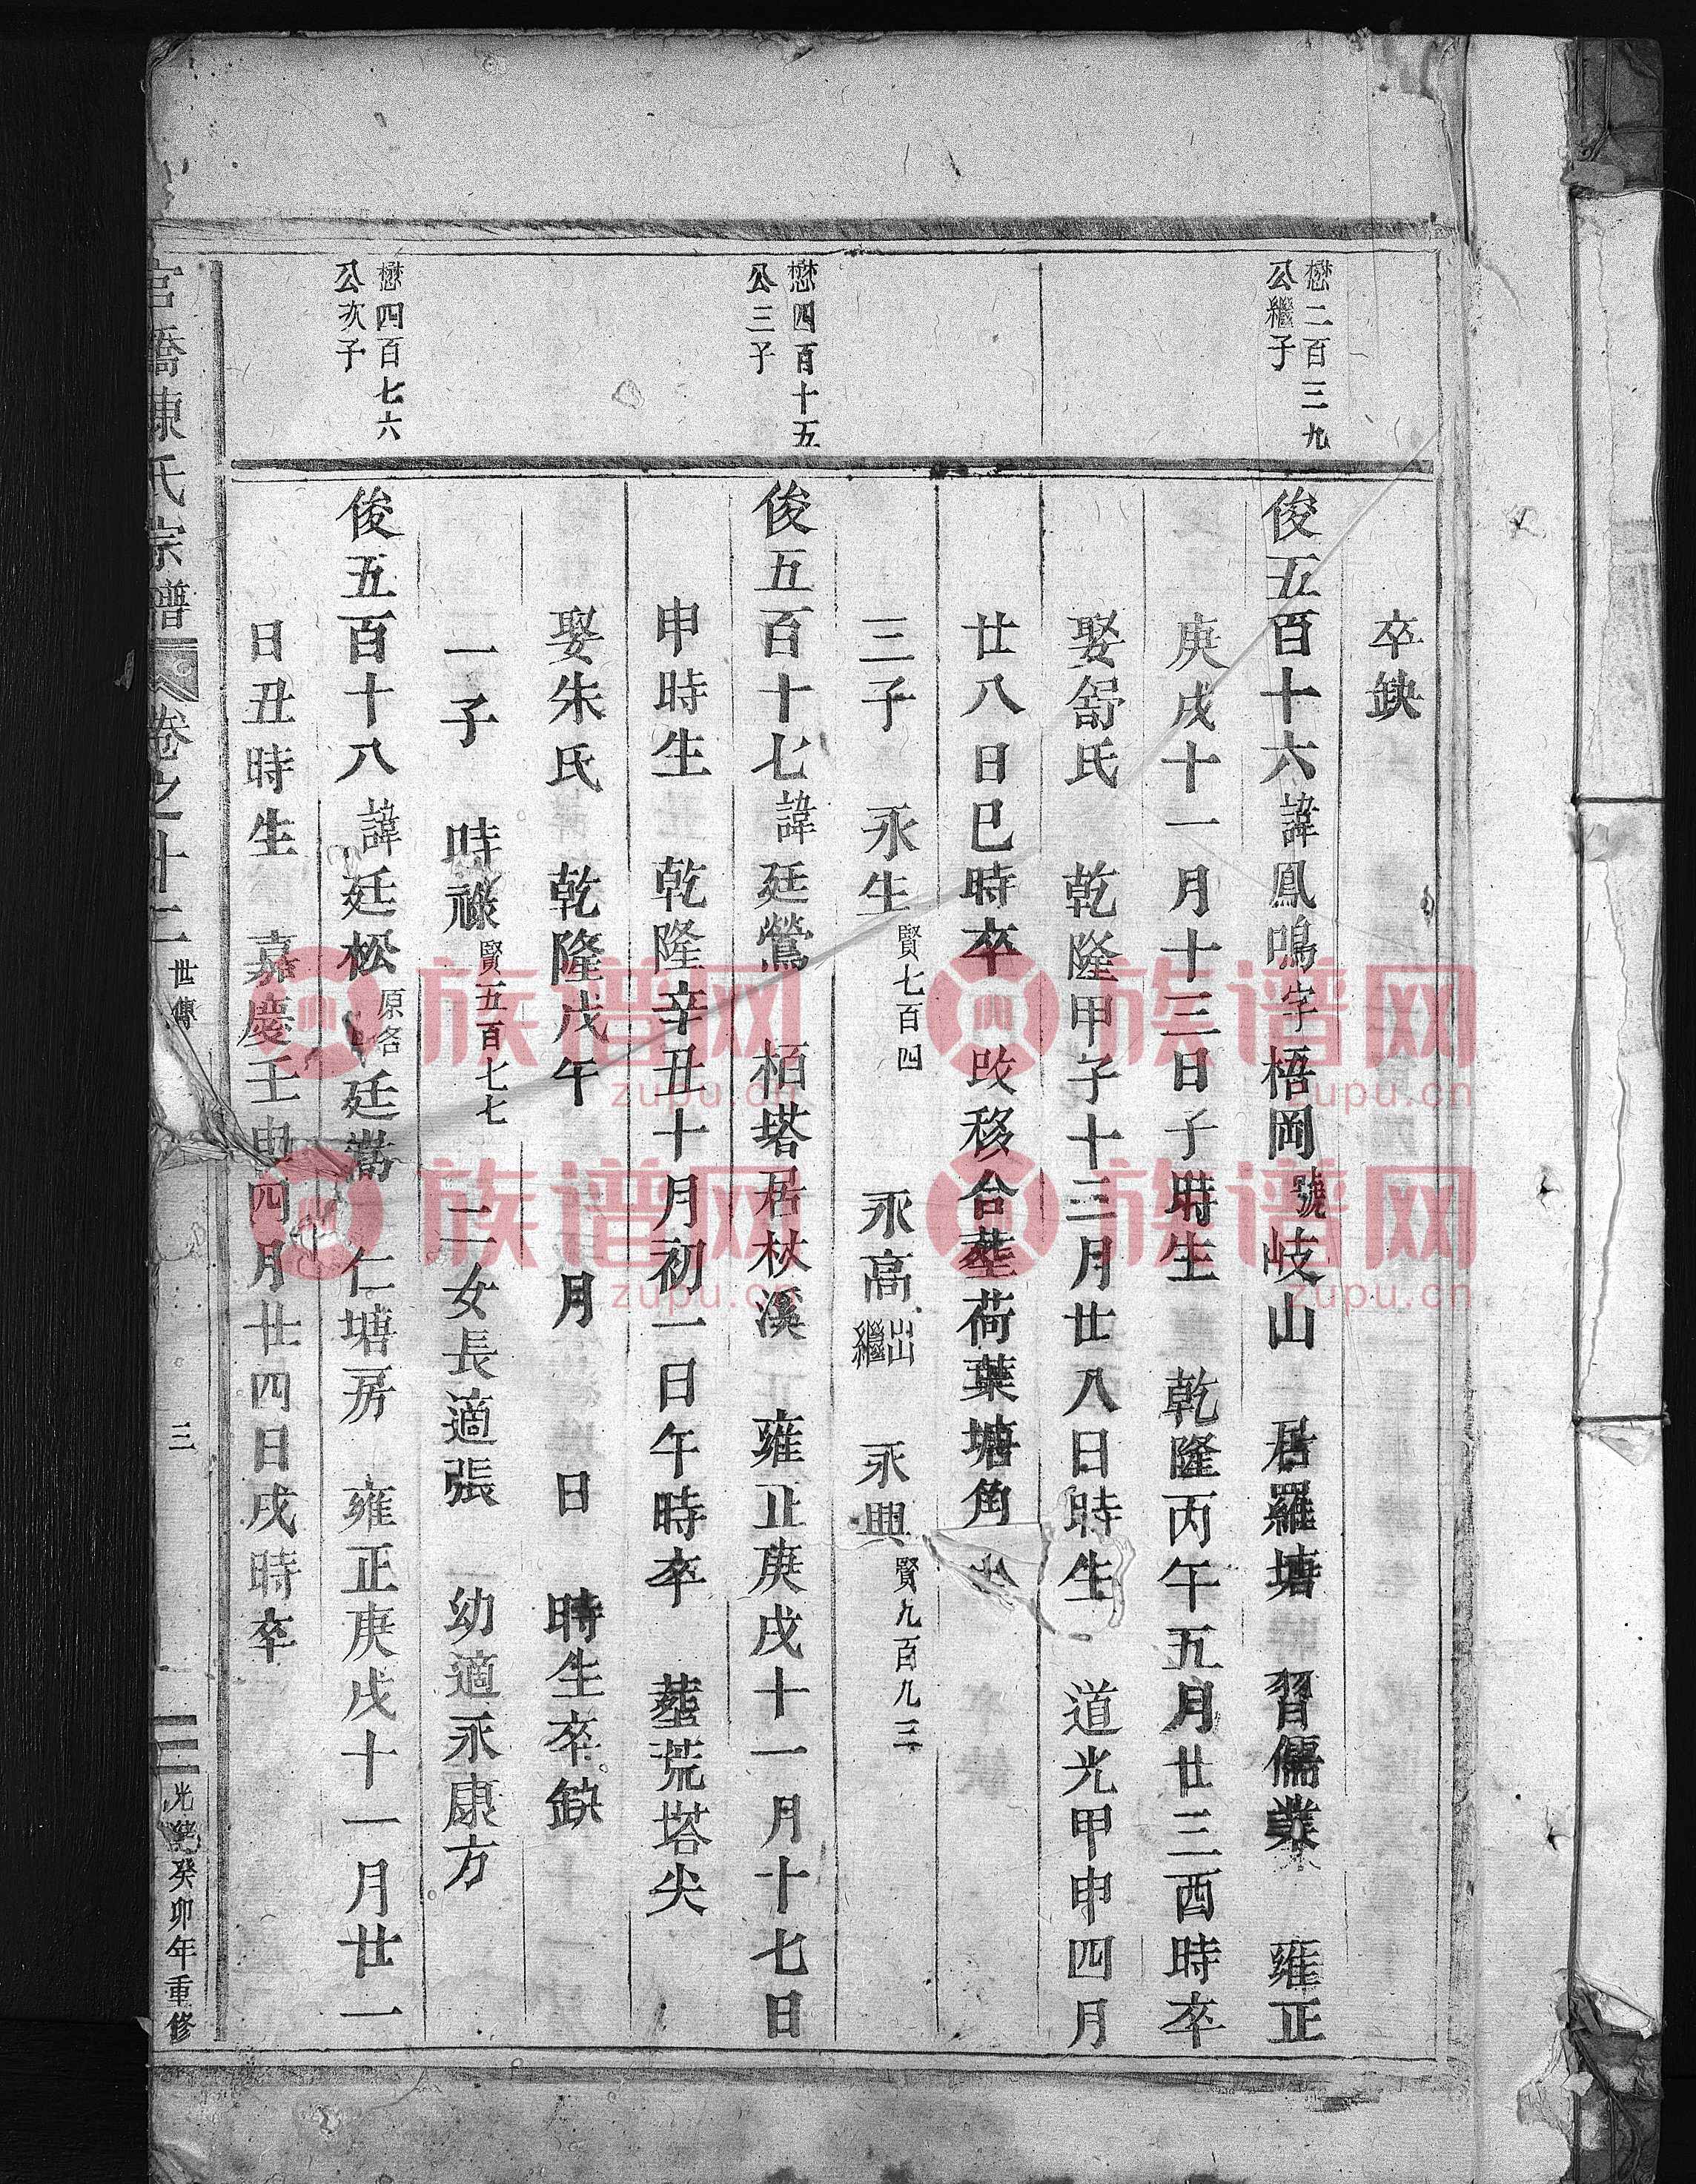 卒缺
懋二百三九
公繼子
俊五百十六諱鳳鳴字梧岡號岐山 居羅塘 習儒業 雍正
庚戌十一月十三日子時生 乾隆丙午五月廿三酉時卒
娶舒氏 乾隆甲子十三月廿八日時生 道光甲申四月
廿八日巳時卒 改移合塟荷葉塘角
三子 永生賢七百四 永高出繼 永興賢九百九三
懋四百十五
公三子
俊五百十七諱廷鶯 栢塔居杖溪 雍正庚戌十一月十七日
申時生 乾隆辛丑十月初一日午時卒 塟荒塔尖
娶朱氏 乾隆戊午 月 日 時生卒缺
一子 時祿賢五百七七 二女長適張 幼適永康方
懋四百七六
公次子
俊五百十八諱廷松原名廷嵩 仁塘房 雍正庚戌十一月廿一
日丑時生 嘉慶壬申四月廿四日戌時卒
官橋陳氏宗譜 卷之廿二 世傳 三 光緒癸卯年重修
族谱网 zupu.cn
族谱网 zupu.cn
族谱网 zupu.cn
族谱网 zupu.cn